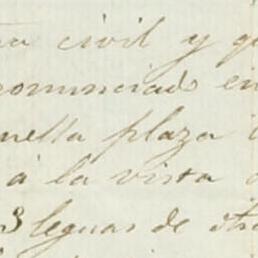 civil y
onunciado en
uella plaza
á la vista
3 leguas de otro